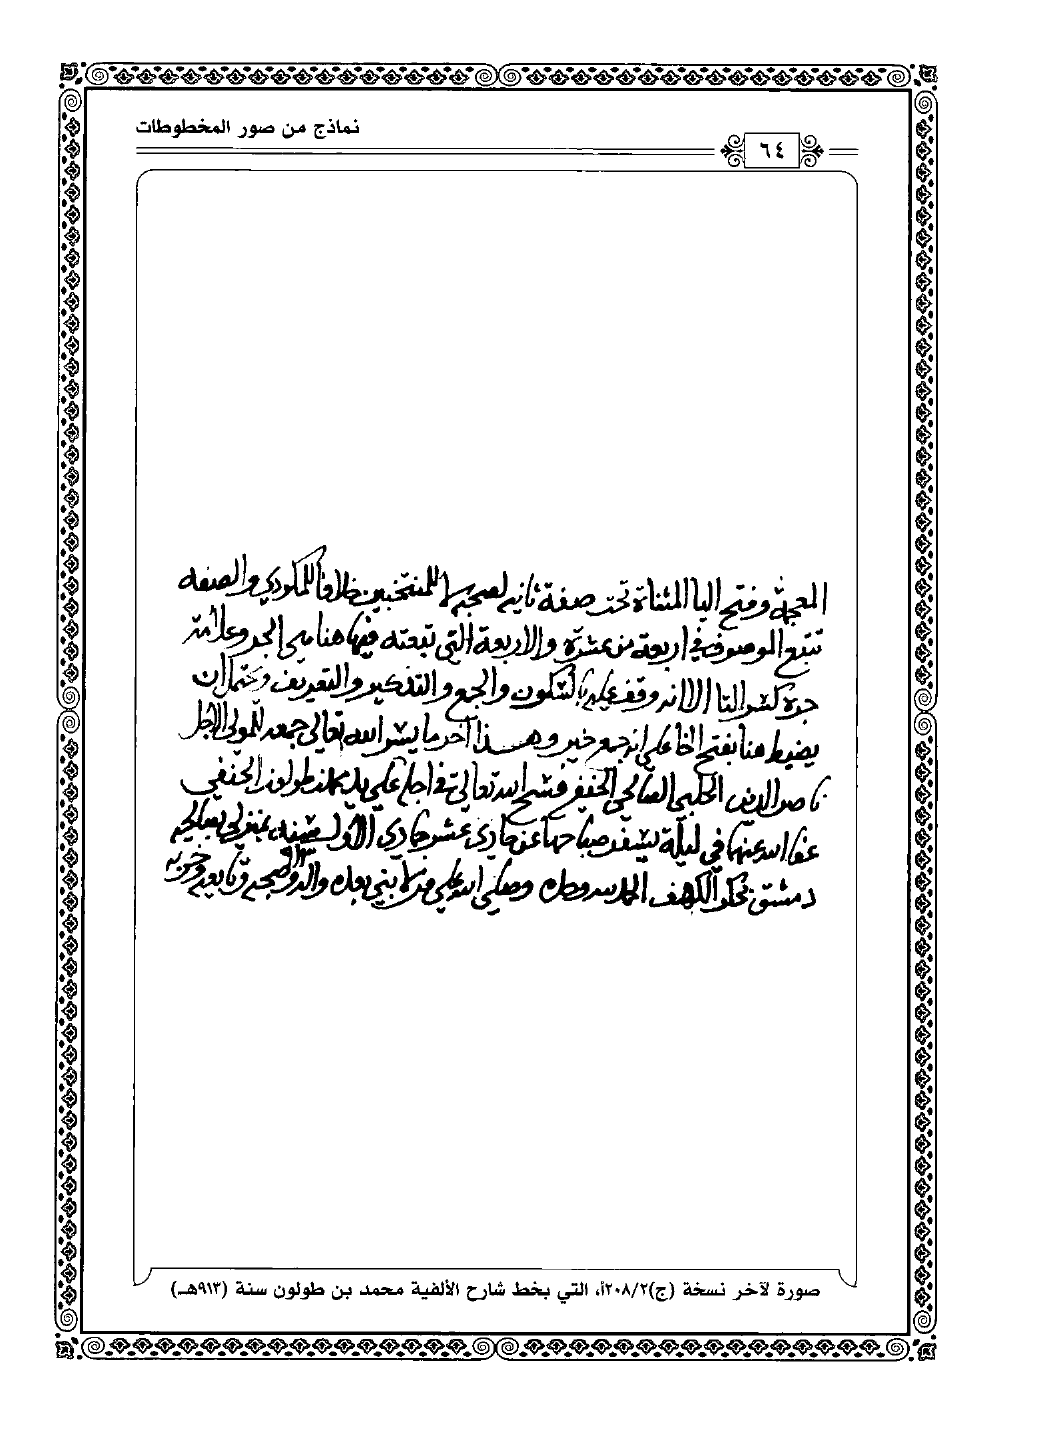 نماذج من صور المخطوطات
٦٤
المعجمة وفتح اليا المثناة تحت صفة ثانية لصحبه اى المنتخبين خلافا للمكودي والصفه
تتبع الموصوف في اربعة من عشرة والاربعة التي تبعته فيها هنا هى الجر وعلامة
جره كسر التا الا انه وقف عليه بالسكون والجمع والتذكير والتعريف ويحتمل ان
يضبط هنا بفتح الخا على انه جمع خير وهـذا آخر ما يسر الله تعالى جمعه للمولى الاجل
ناصر الدين الحلبي الصالحي الحنفي فسح الله تعالى في اجله على يد محمد بن طولون الحنفي
عفا الله عنهما في ليلة يسفر صباحها عن حادي عشر جمادي الاول سنه ٩١٣ بمنزلي بصالحية
دمشق الكهف الحمد لله وحده وصلى الله على من لا نبي بعده واله وصحبه وتابعيه وحزبه
صورة لآخر نسخة (ج)٢٠٨/٢أ، التي بخط شارح الألفية محمد بن طولون سنة (٩١٣هـ)